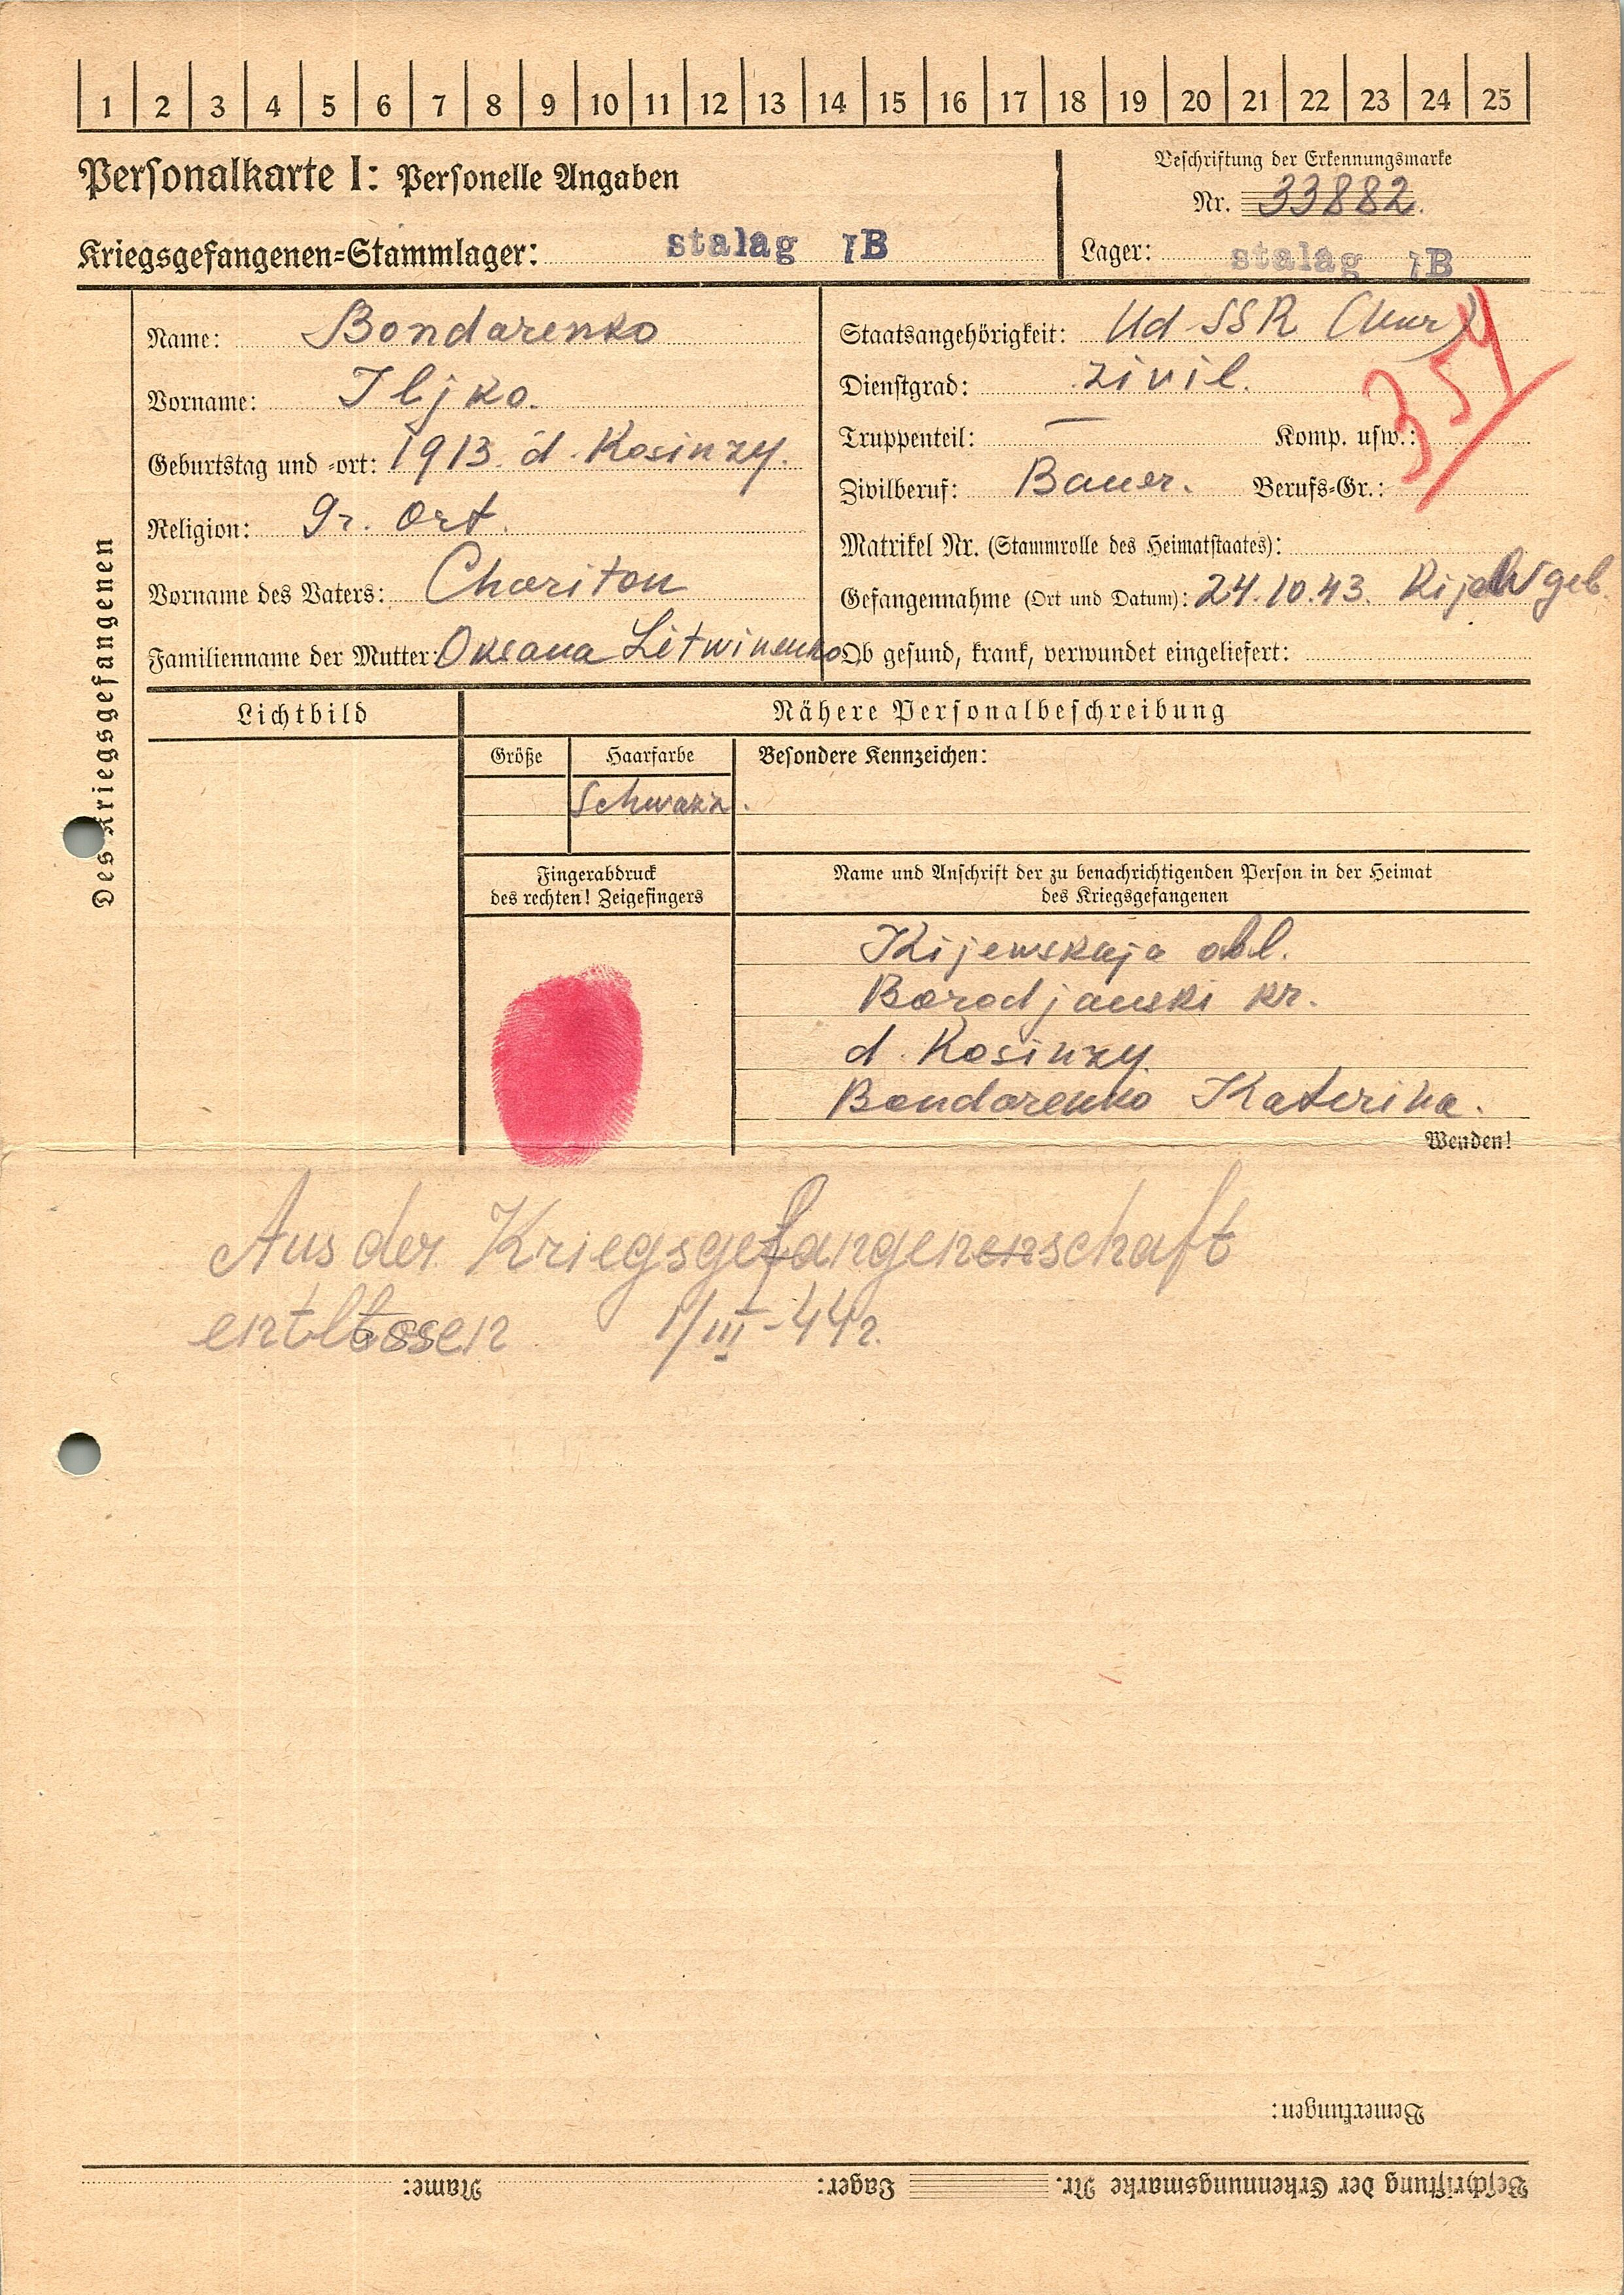 1 2 3 4 5 6 7 8 9 10 11 12 13 14 15 16 17 18 19 20 21 22 23 24 25
Personalkarte I: Personelle Angaben
Beschriftung der Erkennungsmarke
Nr. 33882.
Kriegsgefangenen-Stammlager: stalag IB
Lager: stalag IB
Des Kriegsgefangenen
Name: Bondarenko
Vorname: Iljko.
Geburtstag und -ort: 1913. d. Kosinzy.
Religion: gr. Ort.
Vorname des Vaters: Chariton
Familienname der Mutter: Oksana Litwinenko
Staatsangehörigkeit: Ud SSR
Dienstgrad: zivil.
Truppenteil: — Komp. usw.:
Zivilberuf: Bauer. Berufs-Gr.:
Matrikel Nr. (Stammrolle des Heimatstaates):
Gefangennahme (Ort und Datum): 24.10.43. Kijew geb.
Ob gesund, krank, verwundet eingeliefert:
Lichtbild
Nähere Personalbeschreibung
Größe
Haarfarbe
Besondere Kennzeichen:
Schwarz.
Fingerabdruck
des rechten! Zeigefingers
Name und Anschrift der zu benachrichtigenden Person in der Heimat
des Kriegsgefangenen
Kijewskaja obl.
Borodjanski kr.
d. Kosinzy.
Bondarenko Katerina.
Wenden!
Aus der Kriegsgefangenenschaft
entlassen 1/III-44г.
Bemerkungen:
Beschriftung der Erkennungsmarke Nr. Lager: Name: